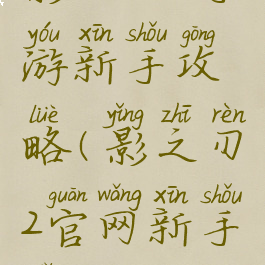 yóu xīn shǒu gōng
游新手攻
lüè yǐng zhī rèn
略(影之刃
guān wǎng xīn shǒu
2官网新手